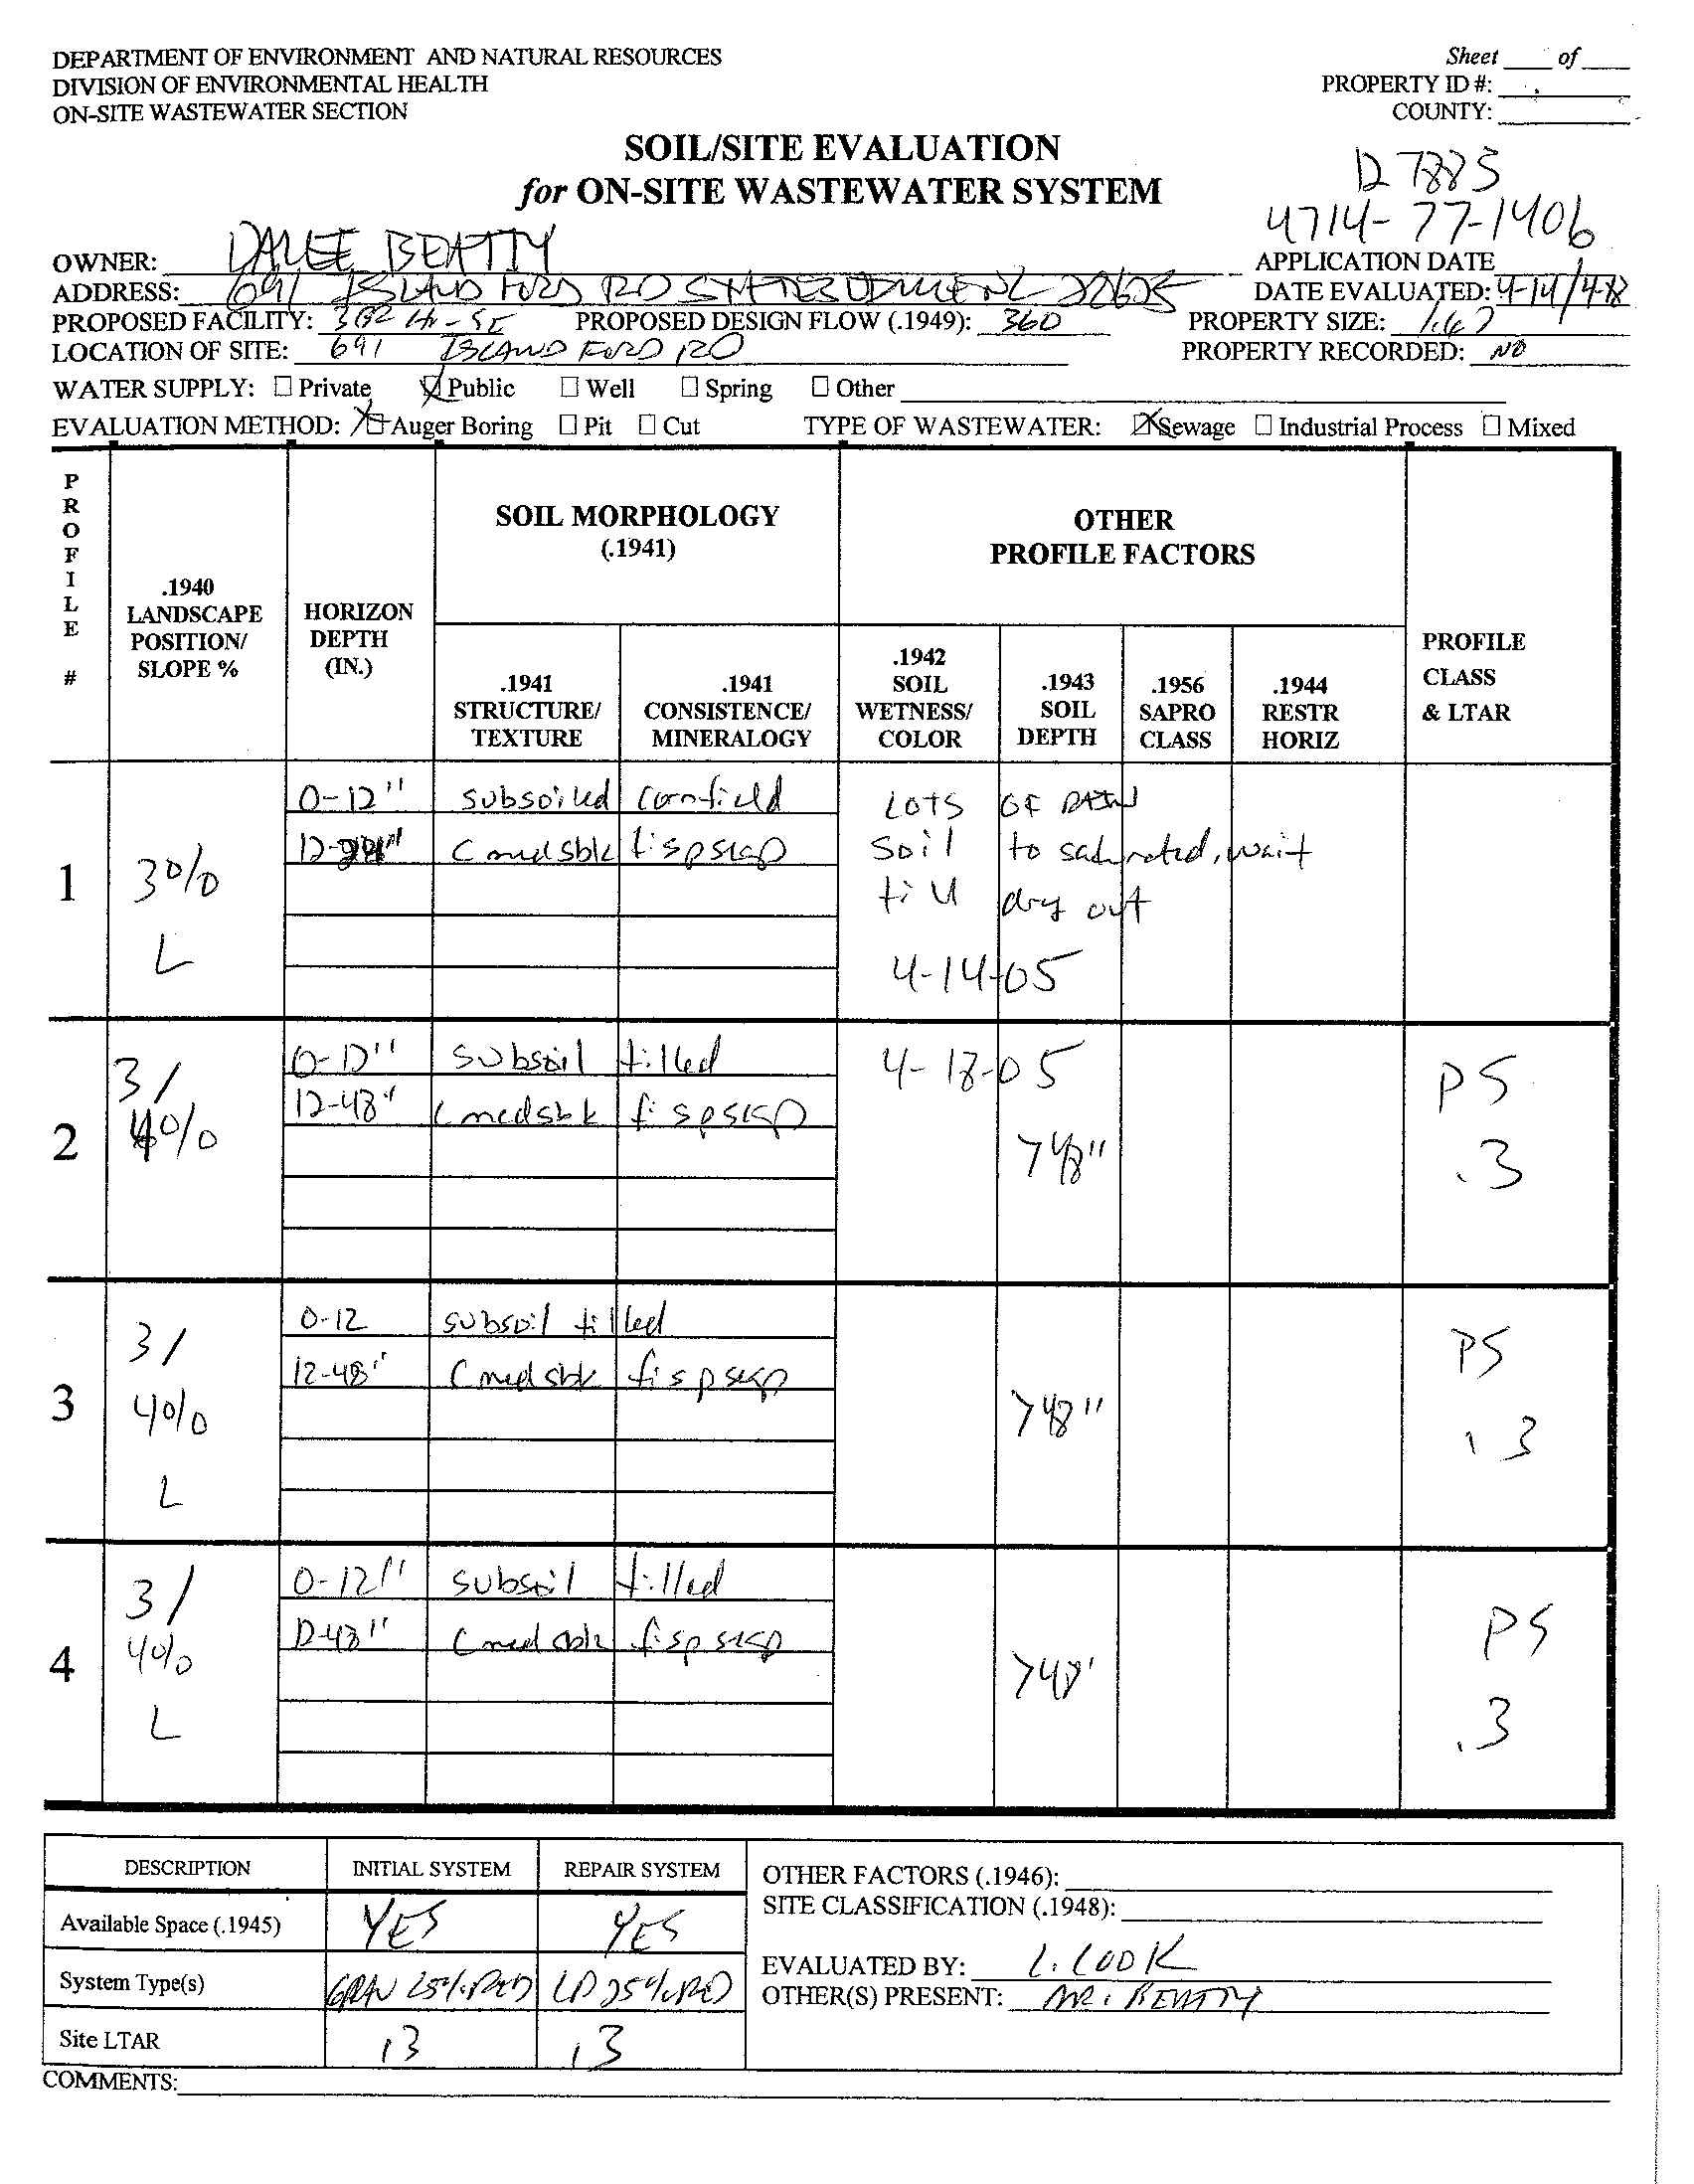 DEPARTMENT OF ENVIRONMENT AND NATURAL RESOURCES
DIVISION OF ENVIRONMENTAL HEALTH
ON-SITE WASTEWATER SECTION
Sheet ____ of ____
PROPERTY ID #:
COUNTY:
SOIL/SITE EVALUATION
for ON-SITE WASTEWATER SYSTEM
4714-77-1406
OWNER: BEATTY
APPLICATION DATE
ADDRESS: 691 ISLAND FORD RD
DATE EVALUATED: 4-14/4-18
PROPOSED FACILITY:
PROPOSED DESIGN FLOW (.1949): 360
PROPERTY SIZE: 1.67
LOCATION OF SITE: 691 ISLAND FORD RD
PROPERTY RECORDED: NO
WATER SUPPLY: Private Public Well Spring Other
EVALUATION METHOD: Auger Boring Pit Cut TYPE OF WASTEWATER: Sewage Industrial Process Mixed
PROFILE #
.1940 LANDSCAPE POSITION/ SLOPE %
HORIZON DEPTH (IN.)
SOIL MORPHOLOGY (.1941)
OTHER PROFILE FACTORS
.1941 STRUCTURE/ TEXTURE
.1941 CONSISTENCE/ MINERALOGY
.1942 SOIL WETNESS/ COLOR
.1943 SOIL DEPTH
.1956 SAPRO CLASS
.1944 RESTR HORIZ
PROFILE CLASS & LTAR
1
3%
L
0-12" subsoiled cornfield
C med sbk fi sp
LOTS OF RAIN
Soil to saturated, wait
till dry out
4-14-05
2
3/
4%
0-12" subsoil tilled
12-48" C med sbk fi sp
4-18-05
>48"
PS
.3
3
3/
4%
L
0-12 subsoil tilled
12-48" C med sbk fi sp
>48"
PS
.3
4
3/
4%
L
0-12" subsoil tilled
12-48" C med sbk fi sp
>48'
PS
.3
DESCRIPTION INITIAL SYSTEM REPAIR SYSTEM
Available Space (.1945) YES YES
System Type(s) 25% RED 25% RED
Site LTAR .3 .3
OTHER FACTORS (.1946):
SITE CLASSIFICATION (.1948):
EVALUATED BY: L. COOK
OTHER(S) PRESENT: MR. BEATTY
COMMENTS: